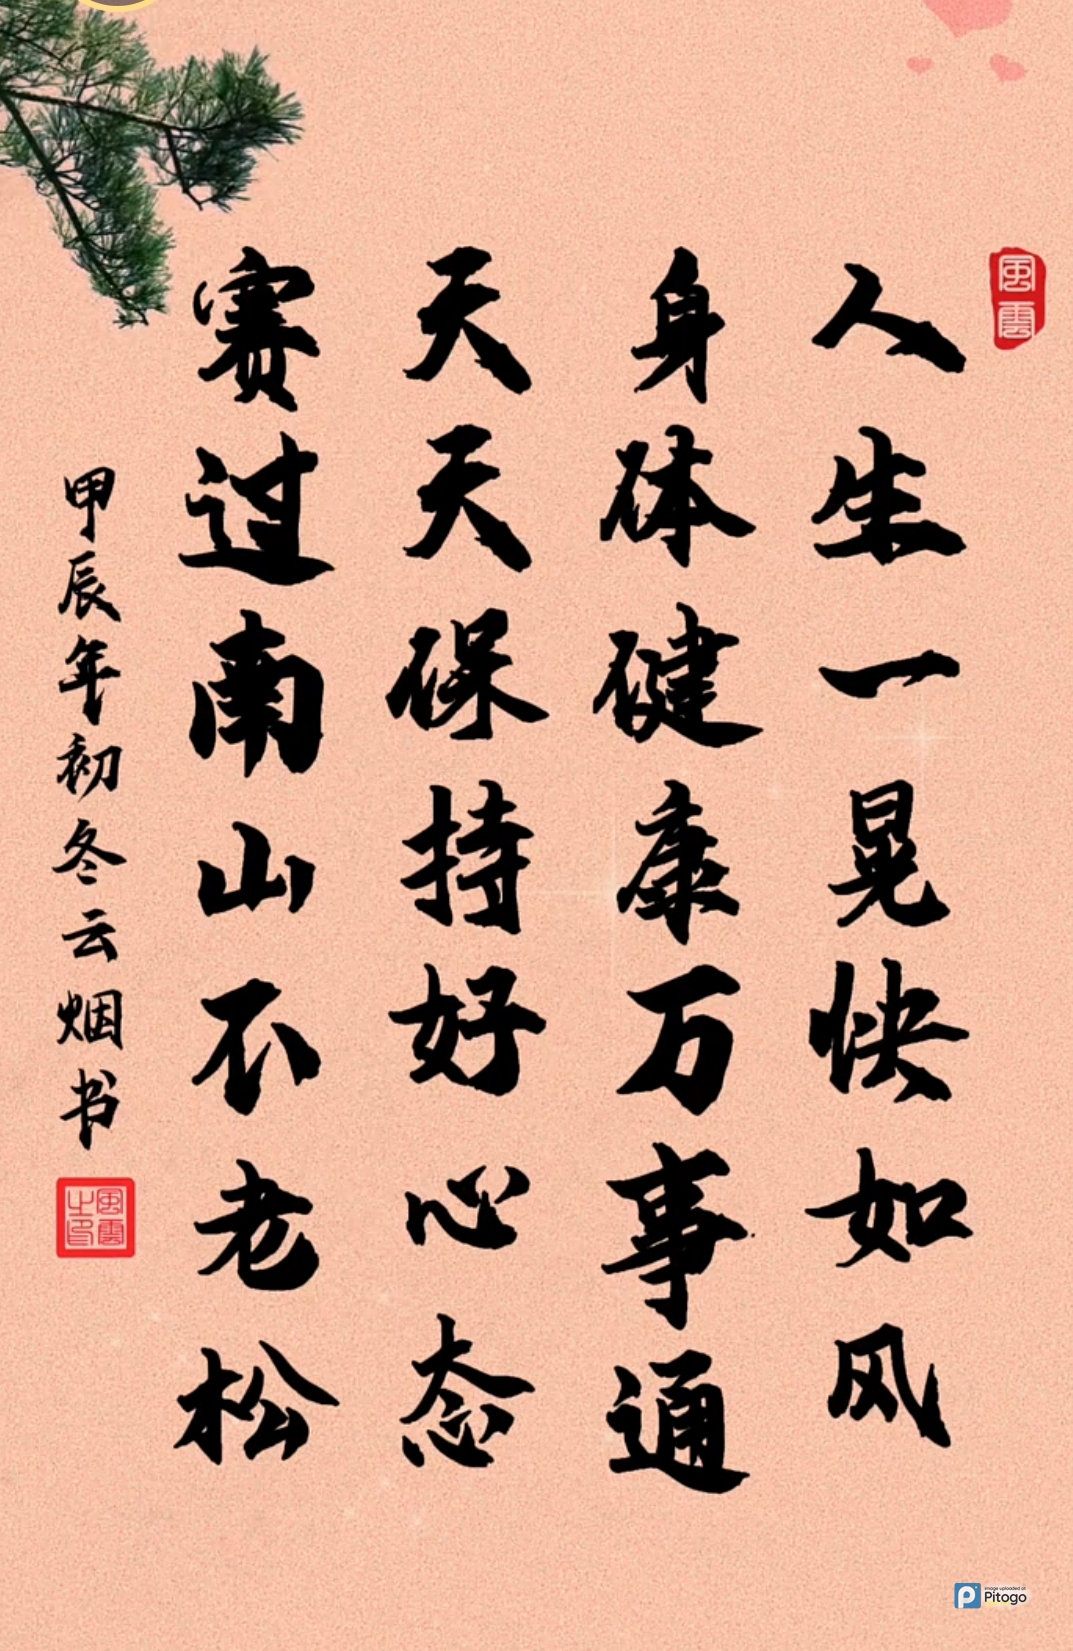 風雲
人生一晃快如风
身体健康万事通
天天保持好心态
赛过南山不老松
甲辰年初冬云烟书
風雲之印
image uploaded at
Pitogo